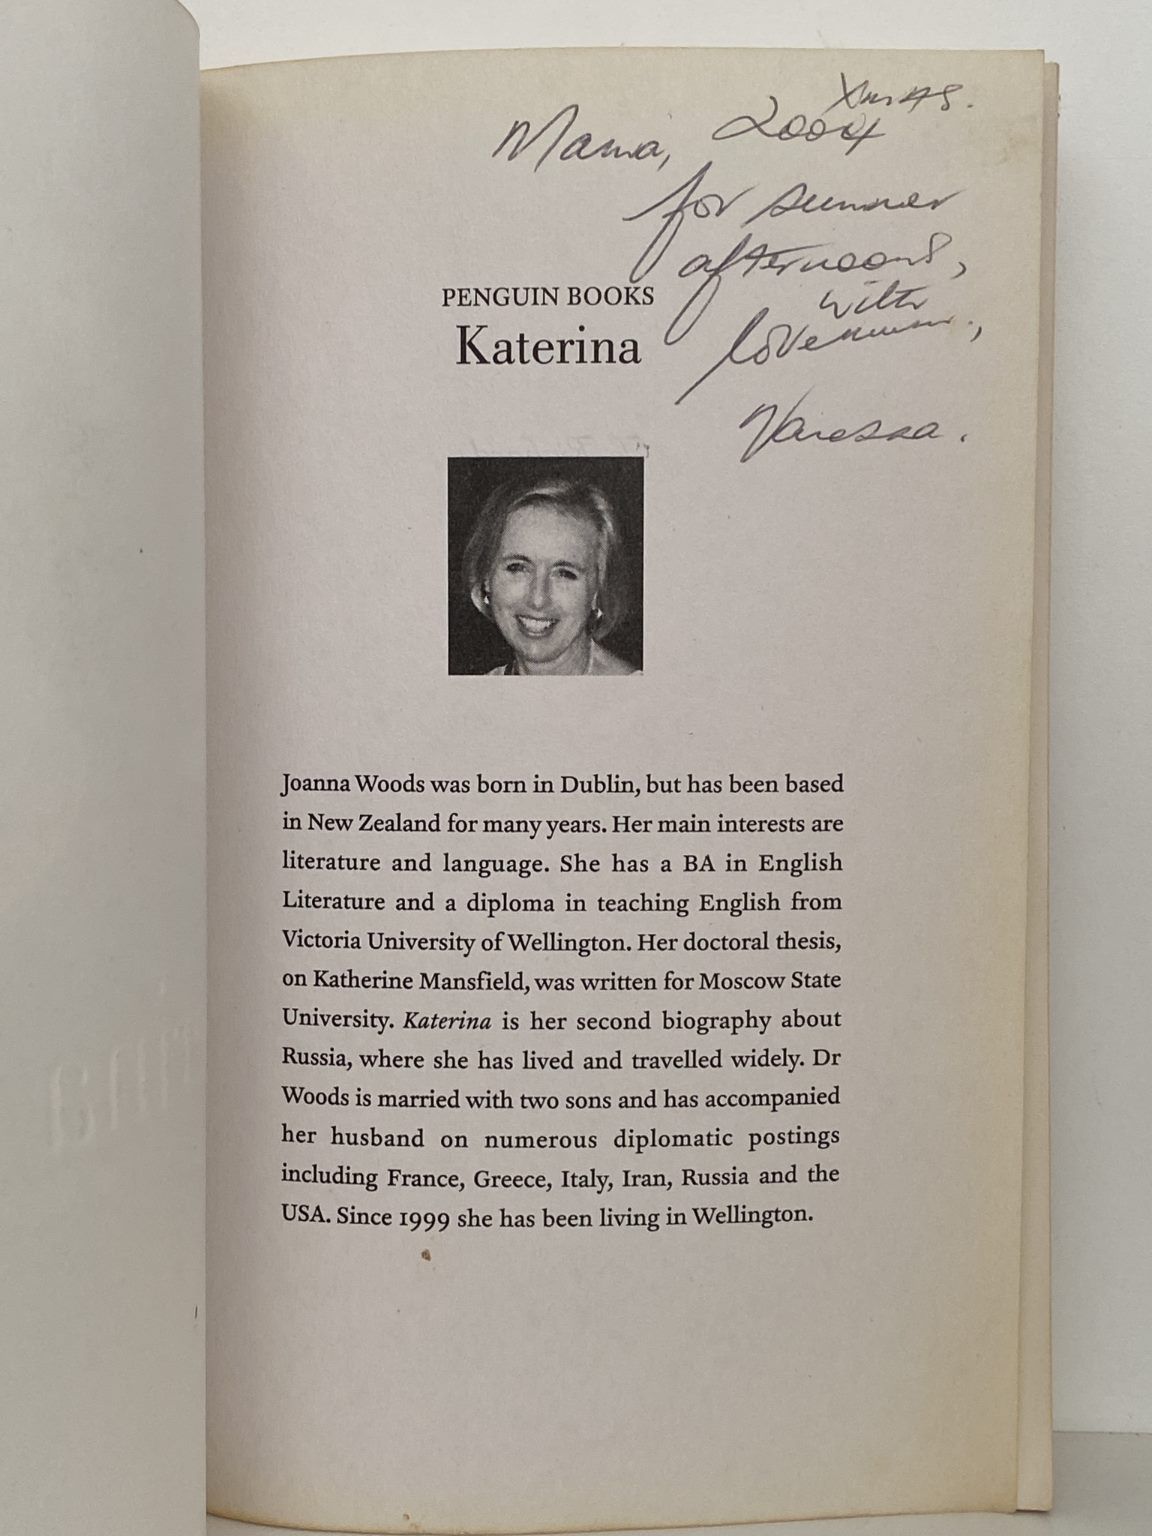 Xmas.
Mama, 2004
for summer
afternoons,
with
love
Vanessa.
PENGUIN BOOKS
Katerina
Joanna Woods was born in Dublin, but has been based
in New Zealand for many years. Her main interests are
literature and language. She has a BA in English
Literature and a diploma in teaching English from
Victoria University of Wellington. Her doctoral thesis,
on Katherine Mansfield, was written for Moscow State
University. Katerina is her second biography about
Russia, where she has lived and travelled widely. Dr
Woods is married with two sons and has accompanied
her husband on numerous diplomatic postings
including France, Greece, Italy, Iran, Russia and the
USA. Since 1999 she has been living in Wellington.